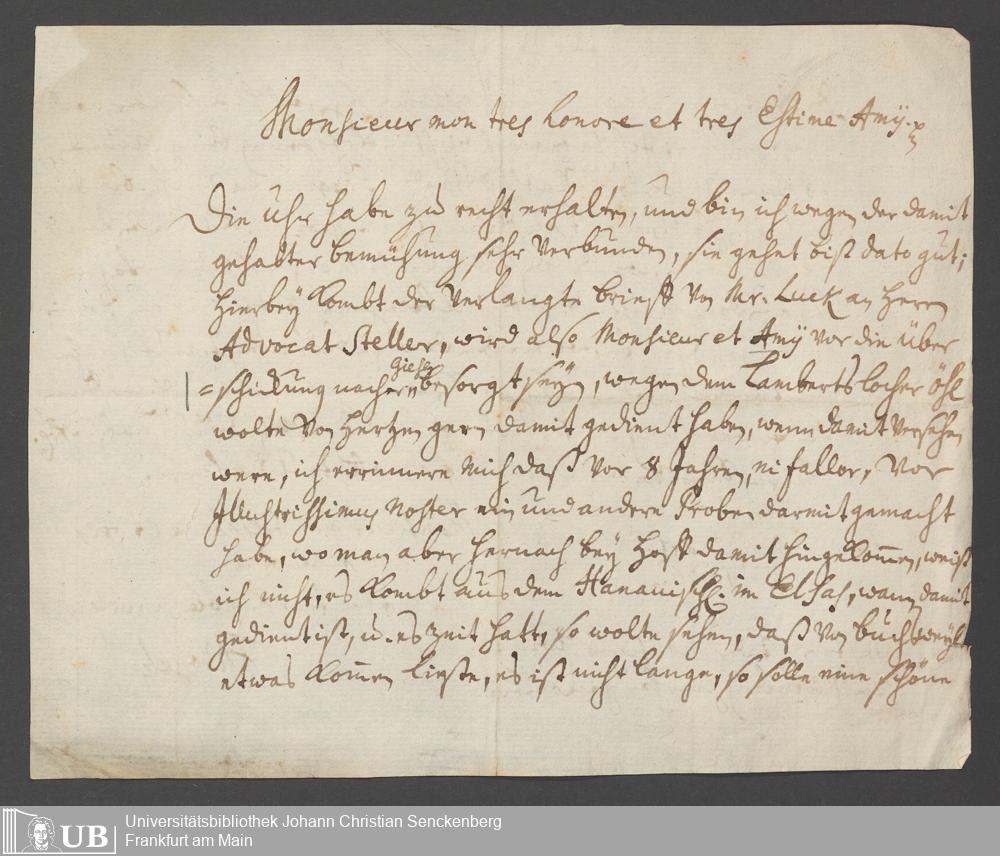 Monsieur mon tres honore et tres Estimé Amÿ.
Die Uhr habe zu recht erhalten, und bin ich wegen der damit
gehabter bemühung sehr verbunden, sie gehet biß dato gut;
hierbey kombt der verlangte brieff von Mr. Luck an Herrn
Advocat Steller, wird also Monsieur et Amÿ vor die über
=schickung nacher Giesen besorgt seyn, wegen dem Lambertslocher öhl
wolte von Hertzen gern damit gedient haben, wenn damit versehen
were, ich errinnere mich daß vor 8 Jahren, ni fallor, vor
Illustrissimus Noster ein und andere Proben darmit gemacht
habe, wo man aber hernach bey Hoff damit hingekom̅en, weiß
ich nicht, es kombt aus dem Hanauisch. im Elsas, wann damit
gedient ist, u. es Zeit hatt, so wolte sehen, daß von buchsweyl.
etwas kom̅en ließe, es ist nicht lange, so solle eine schöne
Universitätsbibliothek Johann Christian Senckenberg
UB Frankfurt am Main